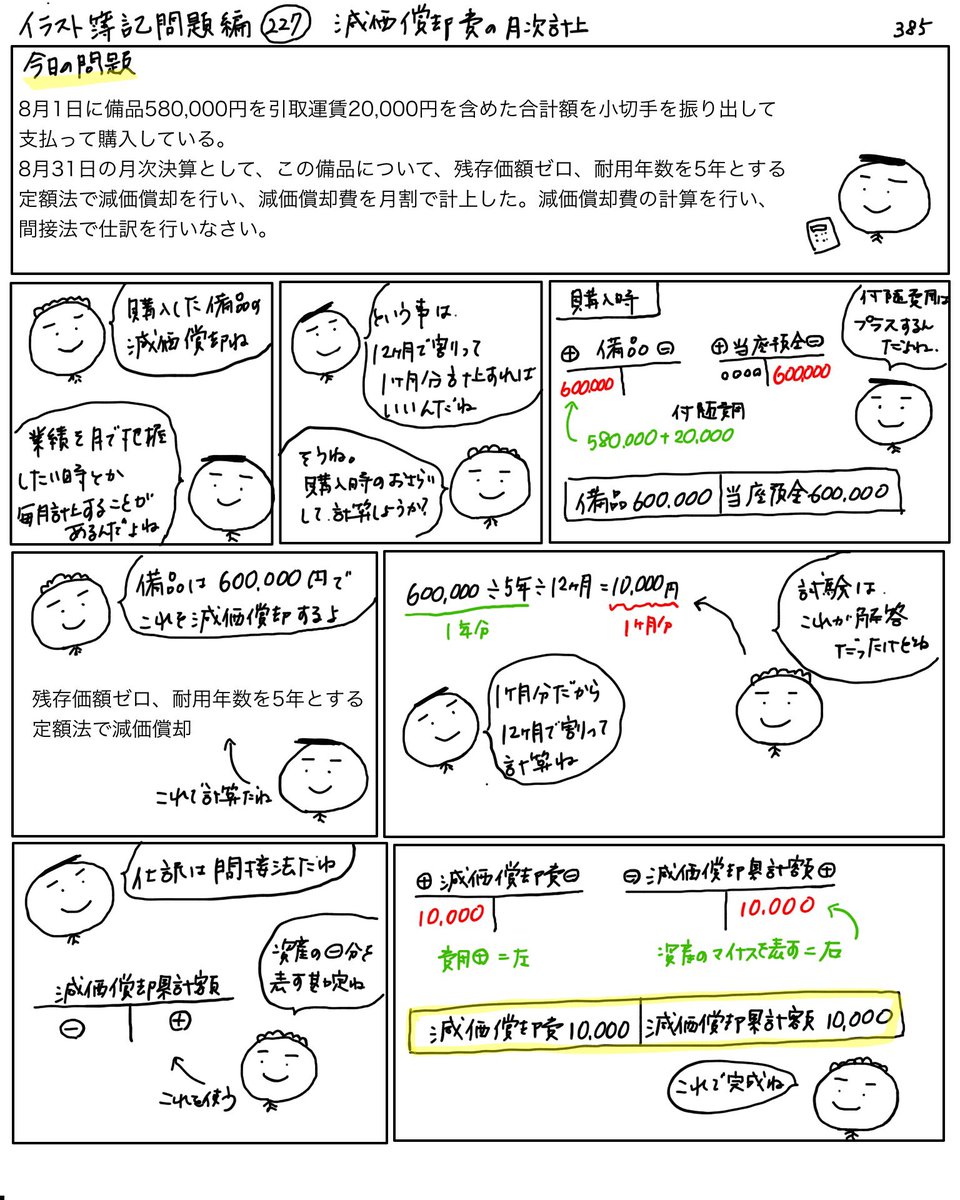 イラスト簿記問題編 227 減価償却費の月次計上 385
今日の問題
8月1日に備品580,000円を引取運賃20,000円を含めた合計額を小切手を振り出して
支払って購入している。
8月31日の月次決算として、この備品について、残存価額ゼロ、耐用年数を5年とする
定額法で減価償却を行い、減価償却費を月割で計上した。減価償却費の計算を行い、
間接法で仕訳を行いなさい。
購入した備品の
減価償却ね
業績を月で把握
したい時とか
毎月計上することが
あるんだよね
という事は、
12ヶ月で割って
1ヶ月分計上すれば
いいんだね
そうね。
購入時のおさらい
して計算しようか?
購入時
付随費用は
プラスするん
だよね。
⊕ 備品 ⊖
⊕当座預金⊖
600,000
0000 600,000
付随費用
580,000+20,000
備品 600,000 当座預金 600,000
備品は600,000円で
これを減価償却するよ
残存価額ゼロ、耐用年数を5年とする
定額法で減価償却
これで計算だね
600,000÷5年÷12ヶ月=10,000円
1年分
1ヶ月分
試験は、
これが解答
だったけどね
1ヶ月分だから
12ヶ月で割って
計算ね
仕訳は間接法だね
資産の⊖分を
表す勘定ね
減価償却累計額
⊖ ⊕
これを使う
⊕ 減価償却費⊖
10,000
費用⊕=左
⊖ 減価償却累計額⊕
10,000
資産のマイナスを表す=右
減価償却費 10,000 減価償却累計額 10,000
これで完成ね